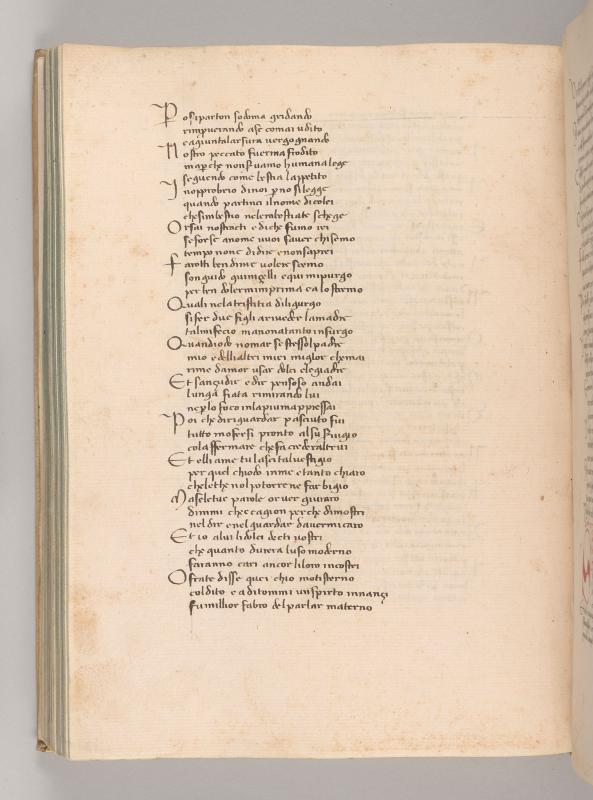 Posiparton sodoma gridando
rimpuerando ase comai udito
eaguntalarsura vergognando
Nostro peccato fuerma frodito
maperche nonservamo humana lege
seguendo come bestia lappetito
Inopprobrio dinoi per noi silegge
quando partinci ilnome dicolei
chesimbestio nelembestiate schege
Orsai nostri acti ediche fumo rei
seforse anome vuoi saver chisemo
tempo none didire enonsaprei
Farotti bendime volere scemo
songuido guinigelli equi mipurgo
per ben dolermi imprima ca lo stremo
Quali nela tristitia diligurgo
sifer due figli ariveder lamadre
talmifecio manonatanto insurgo
Quandiodo nomar se stesso il padre
mio edelli altri miei miglor chemai
rime damor usar dolci elegiadre
Et sançudir edir pensoso andai
lunga fiata rimirando lui
neper lo foco inla piu mappressai
Poi che diriguardar pasciuto fui
tutto mofersi pronto al suo servigio
cola ffermare chefa creder altrui
Et elli ame tu lasci tal vestigio
per quel chiodo inme etanto chiaro
chelethe nol potorre ne far bigio
Ma se letue parole or ver giuraro
dimmi che cagion per che dimostri
nel dir enel guardar davermi caro
Et io alui lidolci decti vostri
che quanto durera luso moderno
faranno cari ancor liloro incostri
O frate disse quei chio motisterno
col dito e aditommi un spirto innançi
fu millior fabro del parlar materno